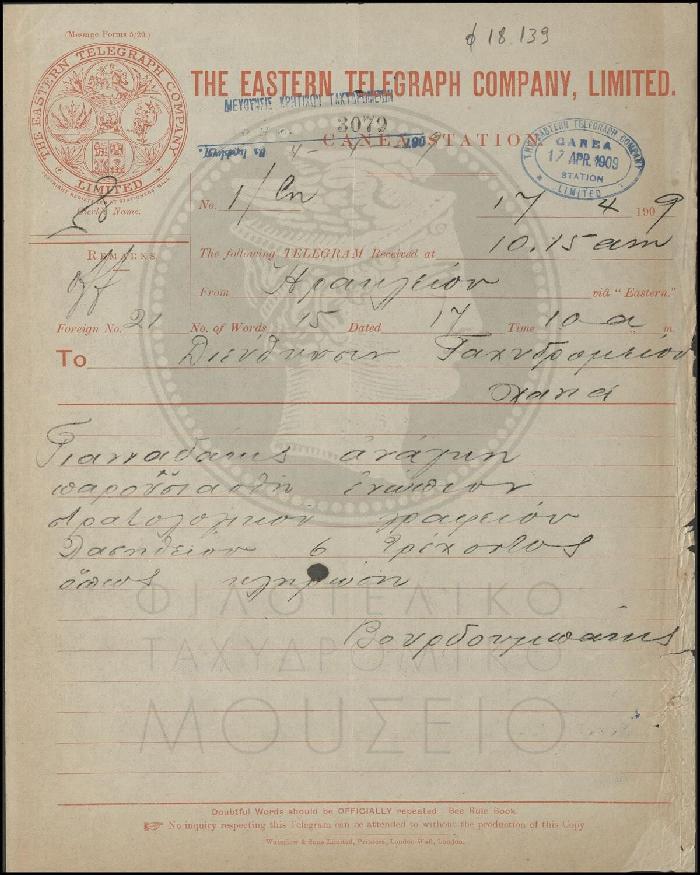 (Message Forms 5/20.)
φ 18.139
THE EASTERN TELEGRAPH COMPANY
LIMITED
THE EASTERN TELEGRAPH COMPANY, LIMITED.
3079
CANEA STATION
THE EASTERN TELEGRAPH COMPANY
CANEA
17 APR. 1909
STATION
LIMITED
Clerk's Name.
No. 1/Cn 17 4 1909
REMARKS
The following TELEGRAM Received at 10.15 am
From Ηρακλείον viâ "Eastern."
Foreign No. 21 No. of Words 15 Dated 17 Time 10 a m
To Διεύθυνσιν Ταχυδρομείου
Χανιά
Γιανναδάκης ἀνάγκη
παρουσιασθῇ ἐνώπιον
στρατολογικού γραφείου
Λασηθείου 6 τρέχοντος
ὅπως κληρώση
Βουρδουμπάκης
ΦΙΛΟΤΕΛΙΚΟ
ΤΑΧΥΔΡΟΜΙΚΟ
ΜΟΥΣΕΙΟ
Doubtful Words should be OFFICIALLY repeated. See Rule Book.
No inquiry respecting this Telegram can be attended to without the production of this Copy
Waterlow & Sons Limited, Printers, London Wall, London.